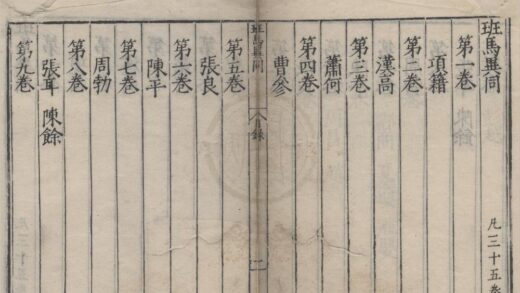 班馬異同
凡三十五卷
第一卷
項籍
第二卷
漢高
第三卷
蕭何
第四卷
曹參
班馬異同
目錄
一
第五卷
張良
第六卷
陳平
第七卷
周勃
第八卷
張耳 陳餘
第九卷